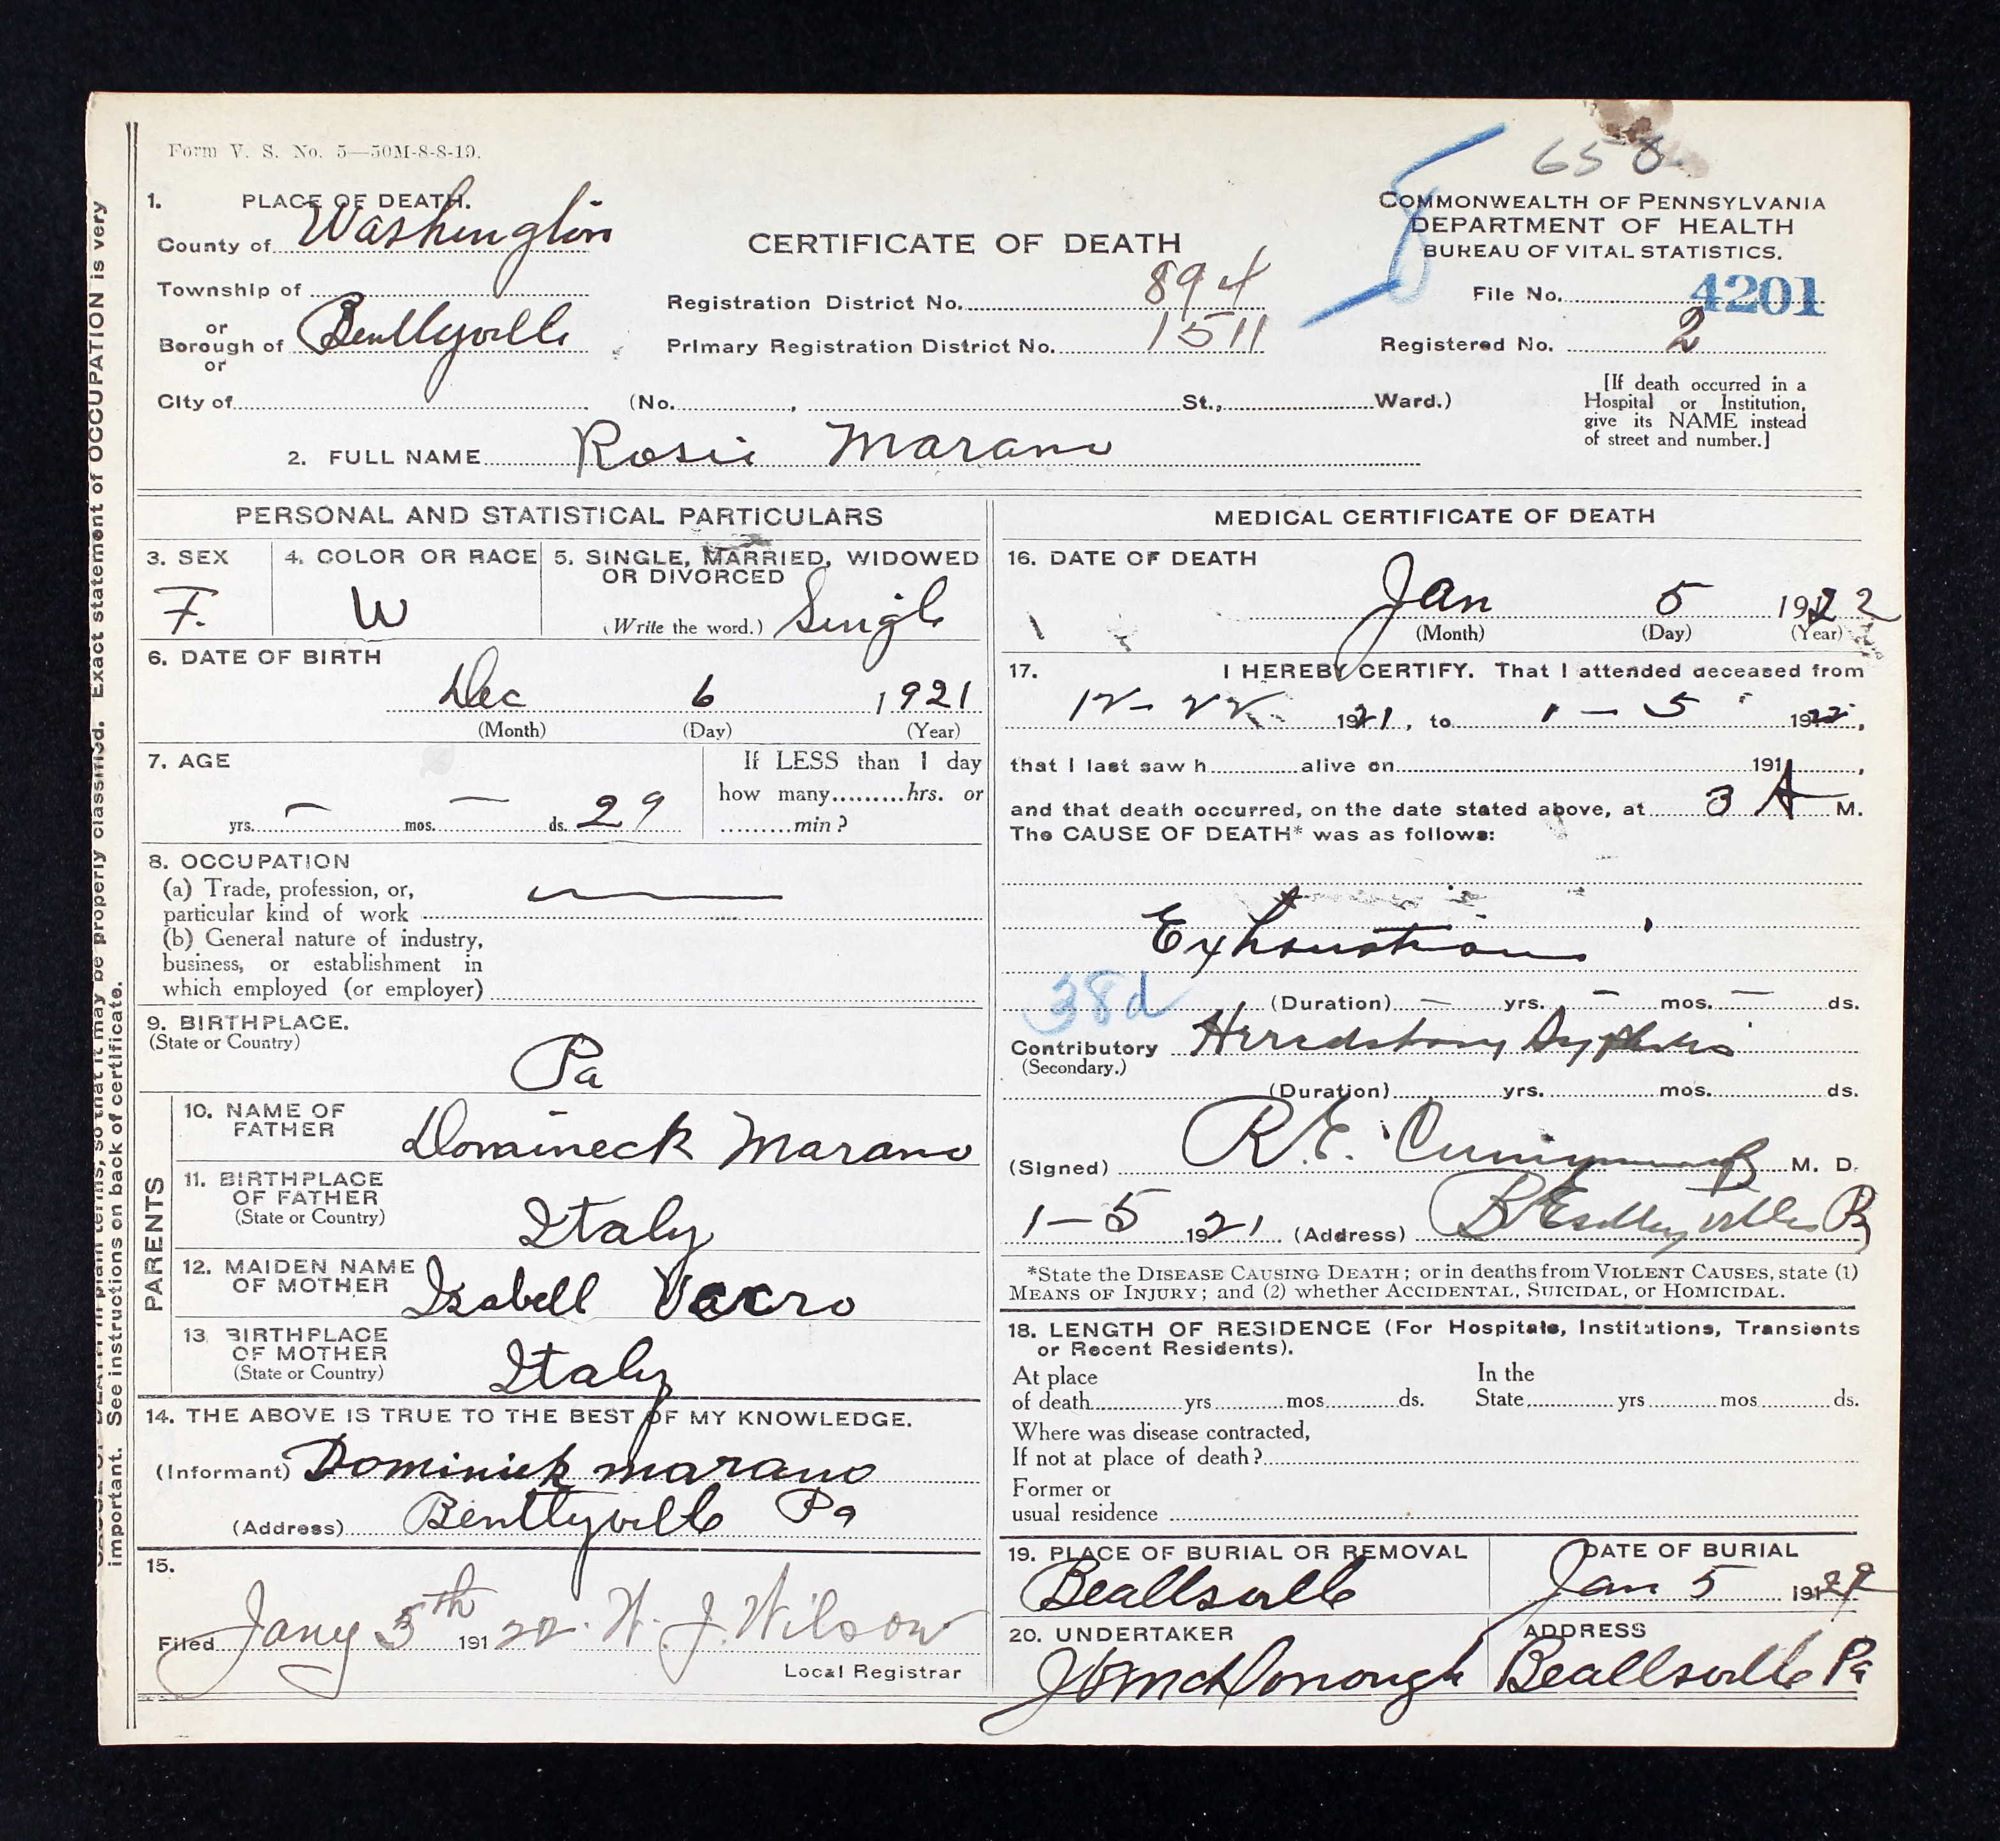 Form V. S. No. 5—50M-8-8-19.
658
1. PLACE OF DEATH.
County of Washington
Township of
or
Borough of Bentleyville
or
City of (No. , St., Ward.)
CERTIFICATE OF DEATH
Registration District No. 894
Primary Registration District No. 1511
COMMONWEALTH OF PENNSYLVANIA
DEPARTMENT OF HEALTH
BUREAU OF VITAL STATISTICS.
File No. 4201
Registered No. 2
[If death occurred in a
Hospital or Institution,
give its NAME instead
of street and number.]
2. FULL NAME Rosie Marano
PERSONAL AND STATISTICAL PARTICULARS
3. SEX
F.
4. COLOR OR RACE
W
5. SINGLE, MARRIED, WIDOWED
OR DIVORCED
(Write the word.) Single
6. DATE OF BIRTH
Dec 6 1921
(Month) (Day) (Year)
7. AGE
yrs. — mos. — ds. 29
If LESS than 1 day
how many.........hrs. or
.........min?
8. OCCUPATION
(a) Trade, profession, or,
particular kind of work
(b) General nature of industry,
business, or establishment in
which employed (or employer)
9. BIRTHPLACE.
(State or Country)
Pa
PARENTS
10. NAME OF
FATHER
Domineck Marano
11. BIRTHPLACE
OF FATHER
(State or Country)
Italy
12. MAIDEN NAME
OF MOTHER
Izabell
13. BIRTHPLACE
OF MOTHER
(State or Country)
Italy
14. THE ABOVE IS TRUE TO THE BEST OF MY KNOWLEDGE.
(Informant) Dominick Marano
(Address) Bentleyville Pa
15.
Filed Jany 5th 1922 W. J. Wilson
Local Registrar
MEDICAL CERTIFICATE OF DEATH
16. DATE OF DEATH
Jan 5 1922
(Month) (Day) (Year)
17. I HEREBY CERTIFY. That I attended deceased from
12-22 1921, to 1-5 1922,
that I last saw h alive on 191 ,
and that death occurred, on the date stated above, at 3 A M.
The CAUSE OF DEATH* was as follows:
Exhaustion
38d
(Duration) — yrs. — mos. — ds.
Contributory Hereditary Syphilis
(Secondary.)
(Duration) yrs. mos. ds.
(Signed) R. E. M. D.
1-5 1921 (Address) Bentleyville Pa
*State the DISEASE CAUSING DEATH; or in deaths from VIOLENT CAUSES, state (1)
MEANS OF INJURY; and (2) whether ACCIDENTAL, SUICIDAL, or HOMICIDAL.
18. LENGTH OF RESIDENCE (For Hospitals, Institutions, Transients
or Recent Residents).
At place
of death yrs mos ds.
In the
State yrs mos ds.
Where was disease contracted,
If not at place of death?
Former or
usual residence
19. PLACE OF BURIAL OR REMOVAL
Beallsville
DATE OF BURIAL
Jan 5 1922
20. UNDERTAKER
McDonough
ADDRESS
Beallsville Pa
important. See instructions on back of certificate.
so that it may be properly classified. Exact statement of OCCUPATION is very